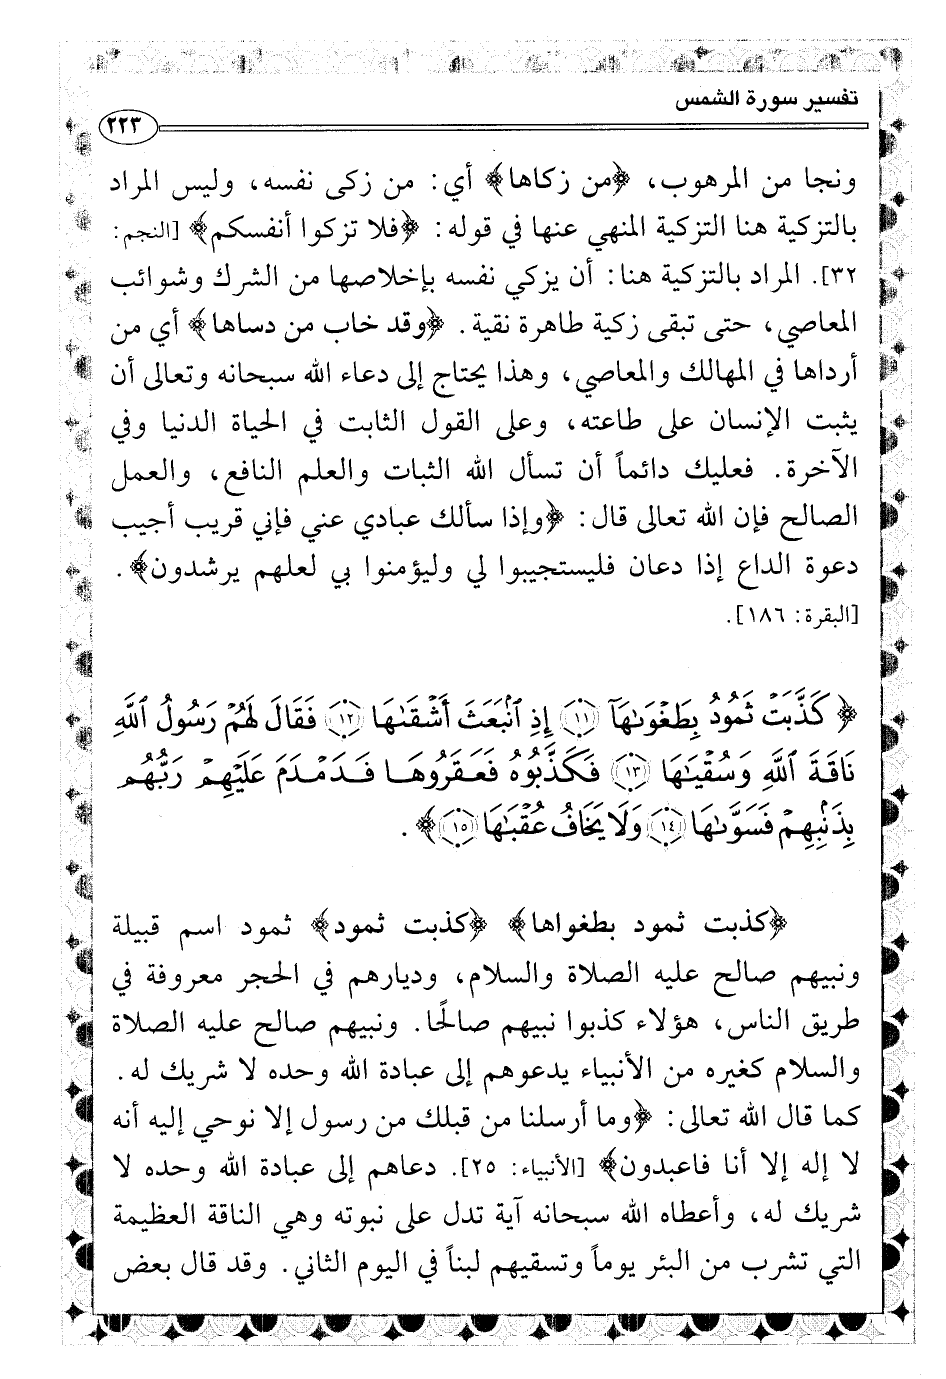 تفسير سورة الشمس
٢٢٣
ونجا من المرهوب، ﴿من زكاها﴾ أي: من زكى نفسه، وليس المراد
بالتزكية هنا التزكية المنهي عنها في قوله: ﴿فلا تزكوا أنفسكم﴾ [النجم:
٣٢]. المراد بالتزكية هنا: أن يزكي نفسه بإخلاصها من الشرك وشوائب
المعاصي، حتى تبقى زكية طاهرة نقية. ﴿وقد خاب من دساها﴾ أي من
أرداها في المهالك والمعاصي، وهذا يحتاج إلى دعاء الله سبحانه وتعالى أن
يثبت الإنسان على طاعته، وعلى القول الثابت في الحياة الدنيا وفي
الآخرة. فعليك دائماً أن تسأل الله الثبات والعلم النافع، والعمل
الصالح فإن الله تعالى قال: ﴿وإذا سألك عبادي عني فإني قريب أجيب
دعوة الداع إذا دعان فليستجيبوا لي وليؤمنوا بي لعلهم يرشدون﴾.
[البقرة: ١٨٦].
﴿ كَذَّبَتْ ثَمُودُ بِطَغْوَىٰهَآ ﴿١١﴾ إِذِ ٱنۢبَعَثَ أَشْقَىٰهَا ﴿١٢﴾ فَقَالَ لَهُمْ رَسُولُ ٱللَّهِ
نَاقَةَ ٱللَّهِ وَسُقْيَٰهَا ﴿١٣﴾ فَكَذَّبُوهُ فَعَقَرُوهَا فَدَمْدَمَ عَلَيْهِمْ رَبُّهُم
بِذَنۢبِهِمْ فَسَوَّىٰهَا ﴿١٤﴾ وَلَا يَخَافُ عُقْبَٰهَا ﴿١٥﴾﴾.
﴿كذبت ثمود بطغواها﴾ ﴿كذبت ثمود﴾ ثمود اسم قبيلة
ونبيهم صالح عليه الصلاة والسلام، وديارهم في الحجر معروفة في
طريق الناس، هؤلاء كذبوا نبيهم صالحًا. ونبيهم صالح عليه الصلاة
والسلام كغيره من الأنبياء يدعوهم إلى عبادة الله وحده لا شريك له.
كما قال الله تعالى: ﴿وما أرسلنا من قبلك من رسول إلا نوحي إليه أنه
لا إله إلا أنا فاعبدون﴾ [الأنبياء: ٢٥]. دعاهم إلى عبادة الله وحده لا
شريك له، وأعطاه الله سبحانه آية تدل على نبوته وهي الناقة العظيمة
التي تشرب من البئر يوماً وتسقيهم لبناً في اليوم الثاني. وقد قال بعض